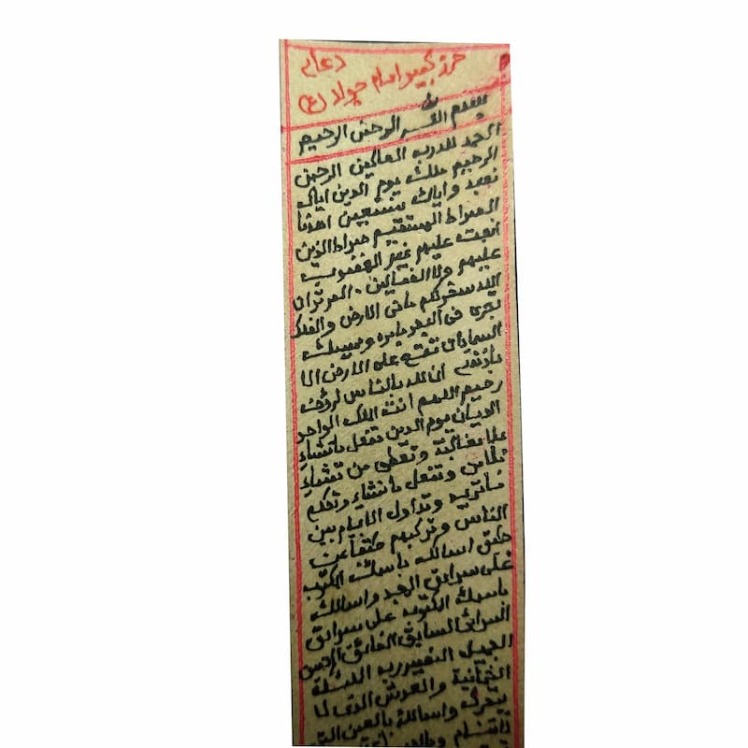 دعای
حرز کبیر امام جواد (ع)
بسم الله الرحمن الرحیم
الحمد لله رب العالمین الرحمن
الرحیم ملک یوم الدین ایاک
نعبد وایاک نستعین اهدنا
الصراط المستقیم صراط الذین
انعمت علیهم غیر المغضوب
علیهم ولا الضالین. الم تر ان
الله سخرلکم مافی الارض والفلک
تجری فی البحر بامره ویمسک
السماء ان تقع علی الارض الا
باذنه ان الله بالناس لرؤف
رحیم اللهم انت الملک الواحد
الدیان یوم الدین تفعل ماتشاء
بلا مغالبة وتعطی من تشاء
بلا من وتفعل ماتشاء وتحکم
ماترید وتداول الایام بین
الناس وترکبهم طبقا عن
طبق اسالک باسمک المکتوب
علی سرادق المجد واسالک
باسمک المکتوب علی سرادق
السرائر السابق الفائق الحسن
الجمیل النصیر رب الملئکة
الثمانیة والعرش الذی لا
یتحرک واسالک بالعین التی
لاتنام